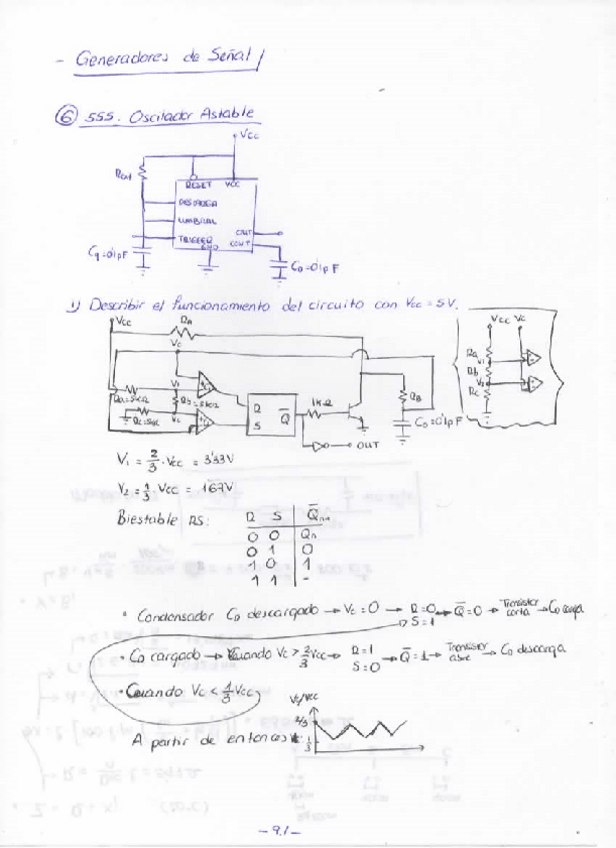 - Generadores de Señal /
⑥ 555. Oscilador Astable
Vcc
RESET VCC
DESCARGA
UMBRAL
OUT
TRIGGER
CONT
GND
C0=0'1µF
1) Describir el funcionamiento del circuito con Vcc = 5V.
Vcc RA
Vcc Vc
Vc
Ra
V1
Rb
V2
Rc
V1
R Q̄
S
1KΩ
RB
C0=0'1µF
OUT
V1 = 2/3 · Vcc = 3'33V
V2 = 1/3 Vcc = 1'67V
Biestable RS:
R S Q̄n+1
0 0 Q̄n
0 1 0
1 0 1
1 1 -
• Condensador C0 descargado → Vc = 0 → R=0 S=1 → Q̄=0 → Transistor corta → C0 carga
• C0 cargado → Cuando Vc > 2/3 Vcc → R=1 S=0 → Q̄=1 → Transistor → C0 descarga
• Cuando Vc < 1/3 Vcc
Vc/Vcc
2/3
A partir de entonces
1/3
- 9.1 -